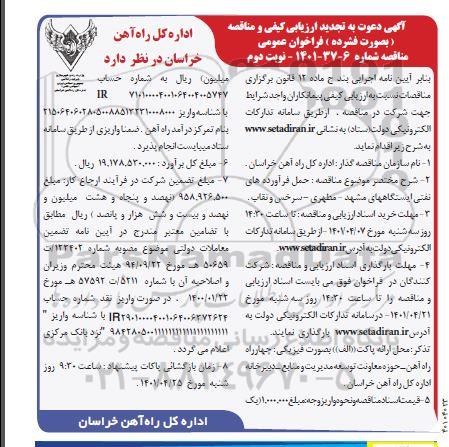 آگهی دعوت به تجدید ارزیابی کیفی و مناقصه
( بصورت فشرده ) فراخوان عمومی
مناقصه شماره ۶-۳۷-۱۴۰۱ - نوبت دوم
اداره کل راه آهن
خراسان در نظر دارد
بنابر آیین نامه اجرایی بند ج ماده ۱۲ قانون برگزاری
مناقصات نسبت به ارزیابی کیفی پیمانکاران واجد شرایط
جهت شرکت در مناقصه ، ازطریق سامانه تدارکات
الکترونیکی دولت (ستاد) به نشانی www.setadiran.ir
به شرح زیر اقدام نماید
۱- نام سازمان مناقصه گذار : اداره کل راه آهن خراسان .
۲- شرح مختصر موضوع مناقصه : حمل فرآورده های
نفتی ایستگاههای مشهد - مطهری - سرخس و نقاب .
۳- مهلت خرید اسناد ارزیابی و مناقصه : تا ساعت ۱۴:۳۰
روز سه شنبه مورخ ۱۴۰۱/۰۴/۰۷ - از طریق سامانه تدارکات
الکترونیکی دولت به آدرس www.setadiran.ir
۴- مهلت بارگذاری اسناد ارزیابی و مناقصه : شرکت
کنندگان در فراخوان فوق می بایست اسناد ارزیابی
و مناقصه را تا ساعت ۱۴:۳۰ روز سه شنبه مورخ
۱۴۰۱/۰۴/۲۱- در سامانه تدارکات الکترونیکی دولت به
آدرس www.setadiran.ir بارگذاری نمایند.
تذکر: محل ارائه پاکت (الف) بصورت فیزیکی : چهارراه
راه آهن_حوزه معاونت توسعه مدیریت و منابع_دبیرخانه
اداره کل راه آهن خراسان .
۵-قیمت اسناد مناقصه و نحوه واریز وجه : مبلغ ۱,۰۰۰,۰۰۰ (یک
میلیون) ریال به شماره حساب
IR ۷۱۰۱۰۰۰۰۴۰۰۱۰۶۴۰۰۴۰۰۵۷۴۷
با شناسه واریز
بنام تمرکز درآمد راه آهن . ضمنا واریزی از طریق سامانه
ستاد میبایست انجام پذیرد .
۶- مبلغ کل برآورد : ۱۹,۱۷۸,۵۳۰,۰۰۰ ریال .
۷- مبلغ تضمین شرکت در فرآیند ارجاع کار: مبلغ
۹۵۸,۹۲۶,۵۰۰ (نهصد و پنجاه و هشت میلیون و
نهصد و بیست و شش هزار و پانصد ) ریال مطابق
با تضامین معتبر مندرج در آیین نامه تضمین
معاملات دولتی موضوع مصوبه شماره ۱۲۳۴۰۲/ت
۵۰۶۵۹ هـ مورخ ۹۴/۰۹/۲۲ هیئت محترم وزیران
و اصلاحیه آن با شماره ۵۲۱۱/ت ۵۷۵۹۲ هـ مورخ
۱۴۰۰/۰۱/۲۲ . در صورت واریز نقد شماره حساب
IR۲۹۰۱۰۰۰۰۴۰۰۱۰۶۴۰۰۶۳۷۲۶۲۴ با شناسه واریز "
" نزد بانک مرکزی
اعلام می گردد .
۸- زمان بازگشائی پاکات پیشنهاد : ساعت ۹:۳۰ روز
شنبه مورخ ۱۴۰۱/۰۴/۲۵ .
اداره کل راه آهن خراسان